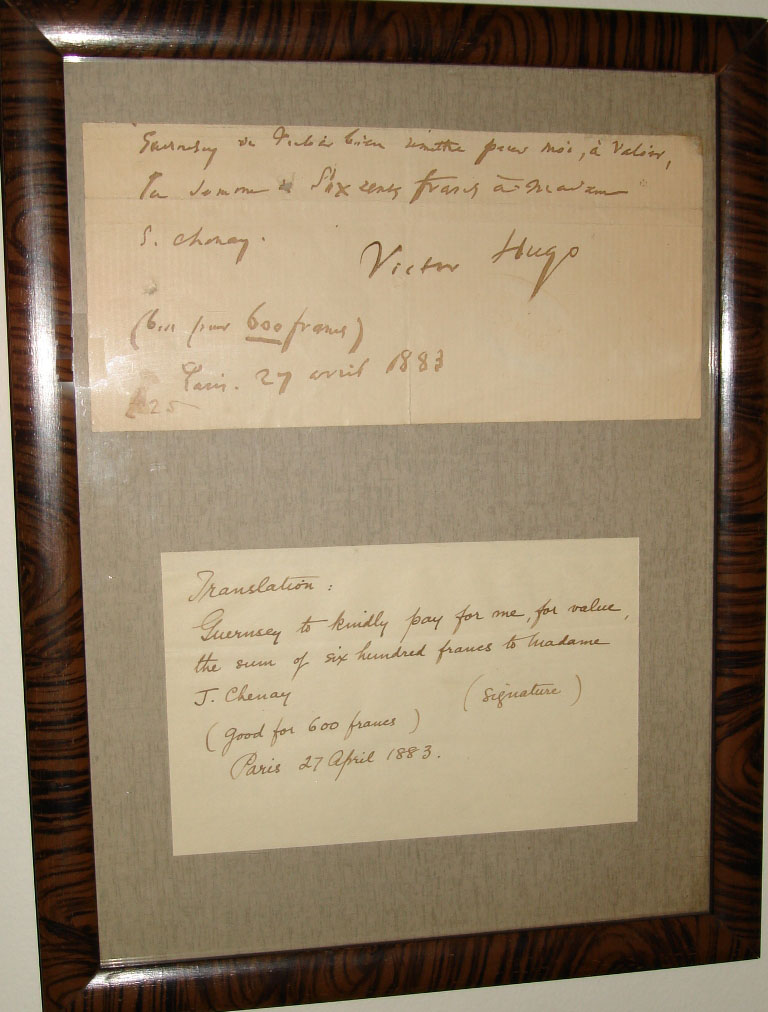 Guernsey
bien remettre pour moi, à valoir,
la somme de Six cents francs à Madame
J. Chenay.
Victor Hugo
(bon pour 600 francs)
Paris. 27 avril 1883
25
Translation :
Guernsey to kindly pay for me, for value,
the sum of six hundred francs to Madame
J. Chenay
(signature)
(good for 600 francs)
Paris 27 April 1883.